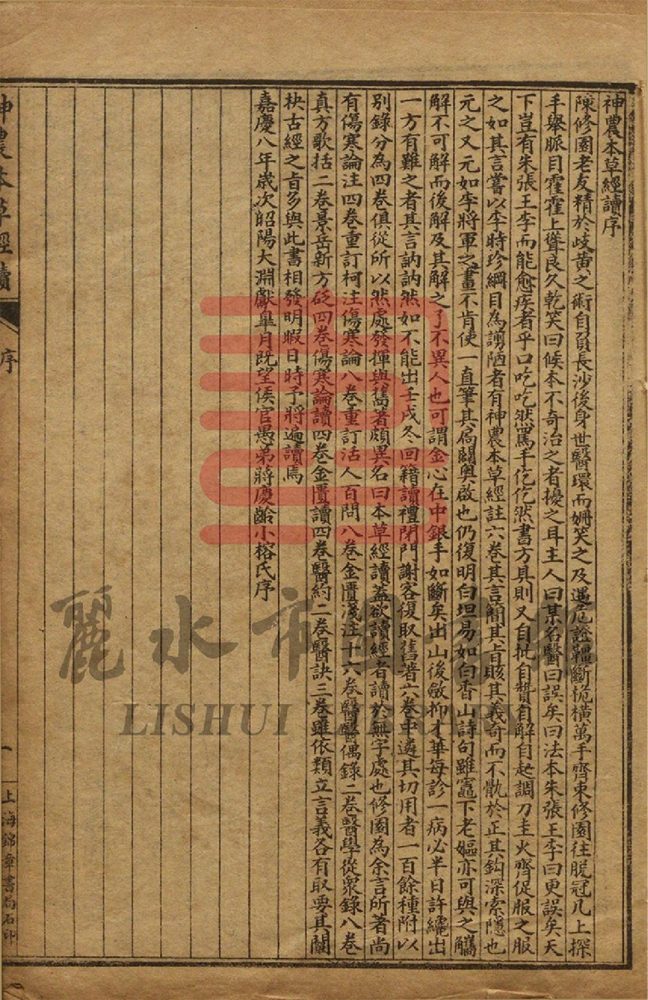 神農本草經讀序
陳修園老友精於岐黃之術自負長沙後身世醫環而姍笑之及遇危證鞫斷㡧橫萬手齊束修園往脫冠几上探
手舉脈目霍霍上聳良久乾笑曰候本不奇治之者擾之耳主人曰某名醫曰誤矣曰法本朱張王李曰更誤矣天
下豈有朱張王李而能愈疾者乎口吃吃然罵手仡仡然書方具則又自批自贊自解自起調刀圭火齊促服之服
之如其言嘗以李時珍綱目為謭陋者有神農本草經註六卷其言簡其旨賅其義奇而不骫於正其鈎深索隱也
元之又元如李將軍之畫不肯使一直筆其扃闢奧啟也仍復明白坦易如白香山詩句雖竈下老嫗亦可與之觿
解不可解而後解及其解之了不異人也可謂金心在中銀手如斷矣出山後斂抑才華每診一病必半日許纔出
一方有難之者其言訥訥然如不能出壬戌冬回籍讀禮閉門謝客復取舊著六卷中遴其切用者一百餘種附以
別錄分為四卷俱從所以然處發揮與舊著頗異名曰本草經讀蓋欲讀經者讀於無字處也修園為余言所著尚
有傷寒論注四卷重訂柯注傷寒論八卷重訂活人百問八卷金匱淺注十六卷醫醫偶錄二卷醫學從衆錄八卷
真方歌括二卷景岳新方砭四卷傷寒論讀四卷金匱讀四卷醫約二卷醫訣三卷雖依類立言義各有取要其闡
抉古經之旨多與此書相發明暇日時予將遍讀焉
嘉慶八年歲次昭陽大淵獻皐月既望侯官愚弟蔣慶齡小榕氏序
神農本草經讀
序
一
上海錦章書局石印
麗水市
LISHUI LIBRARY